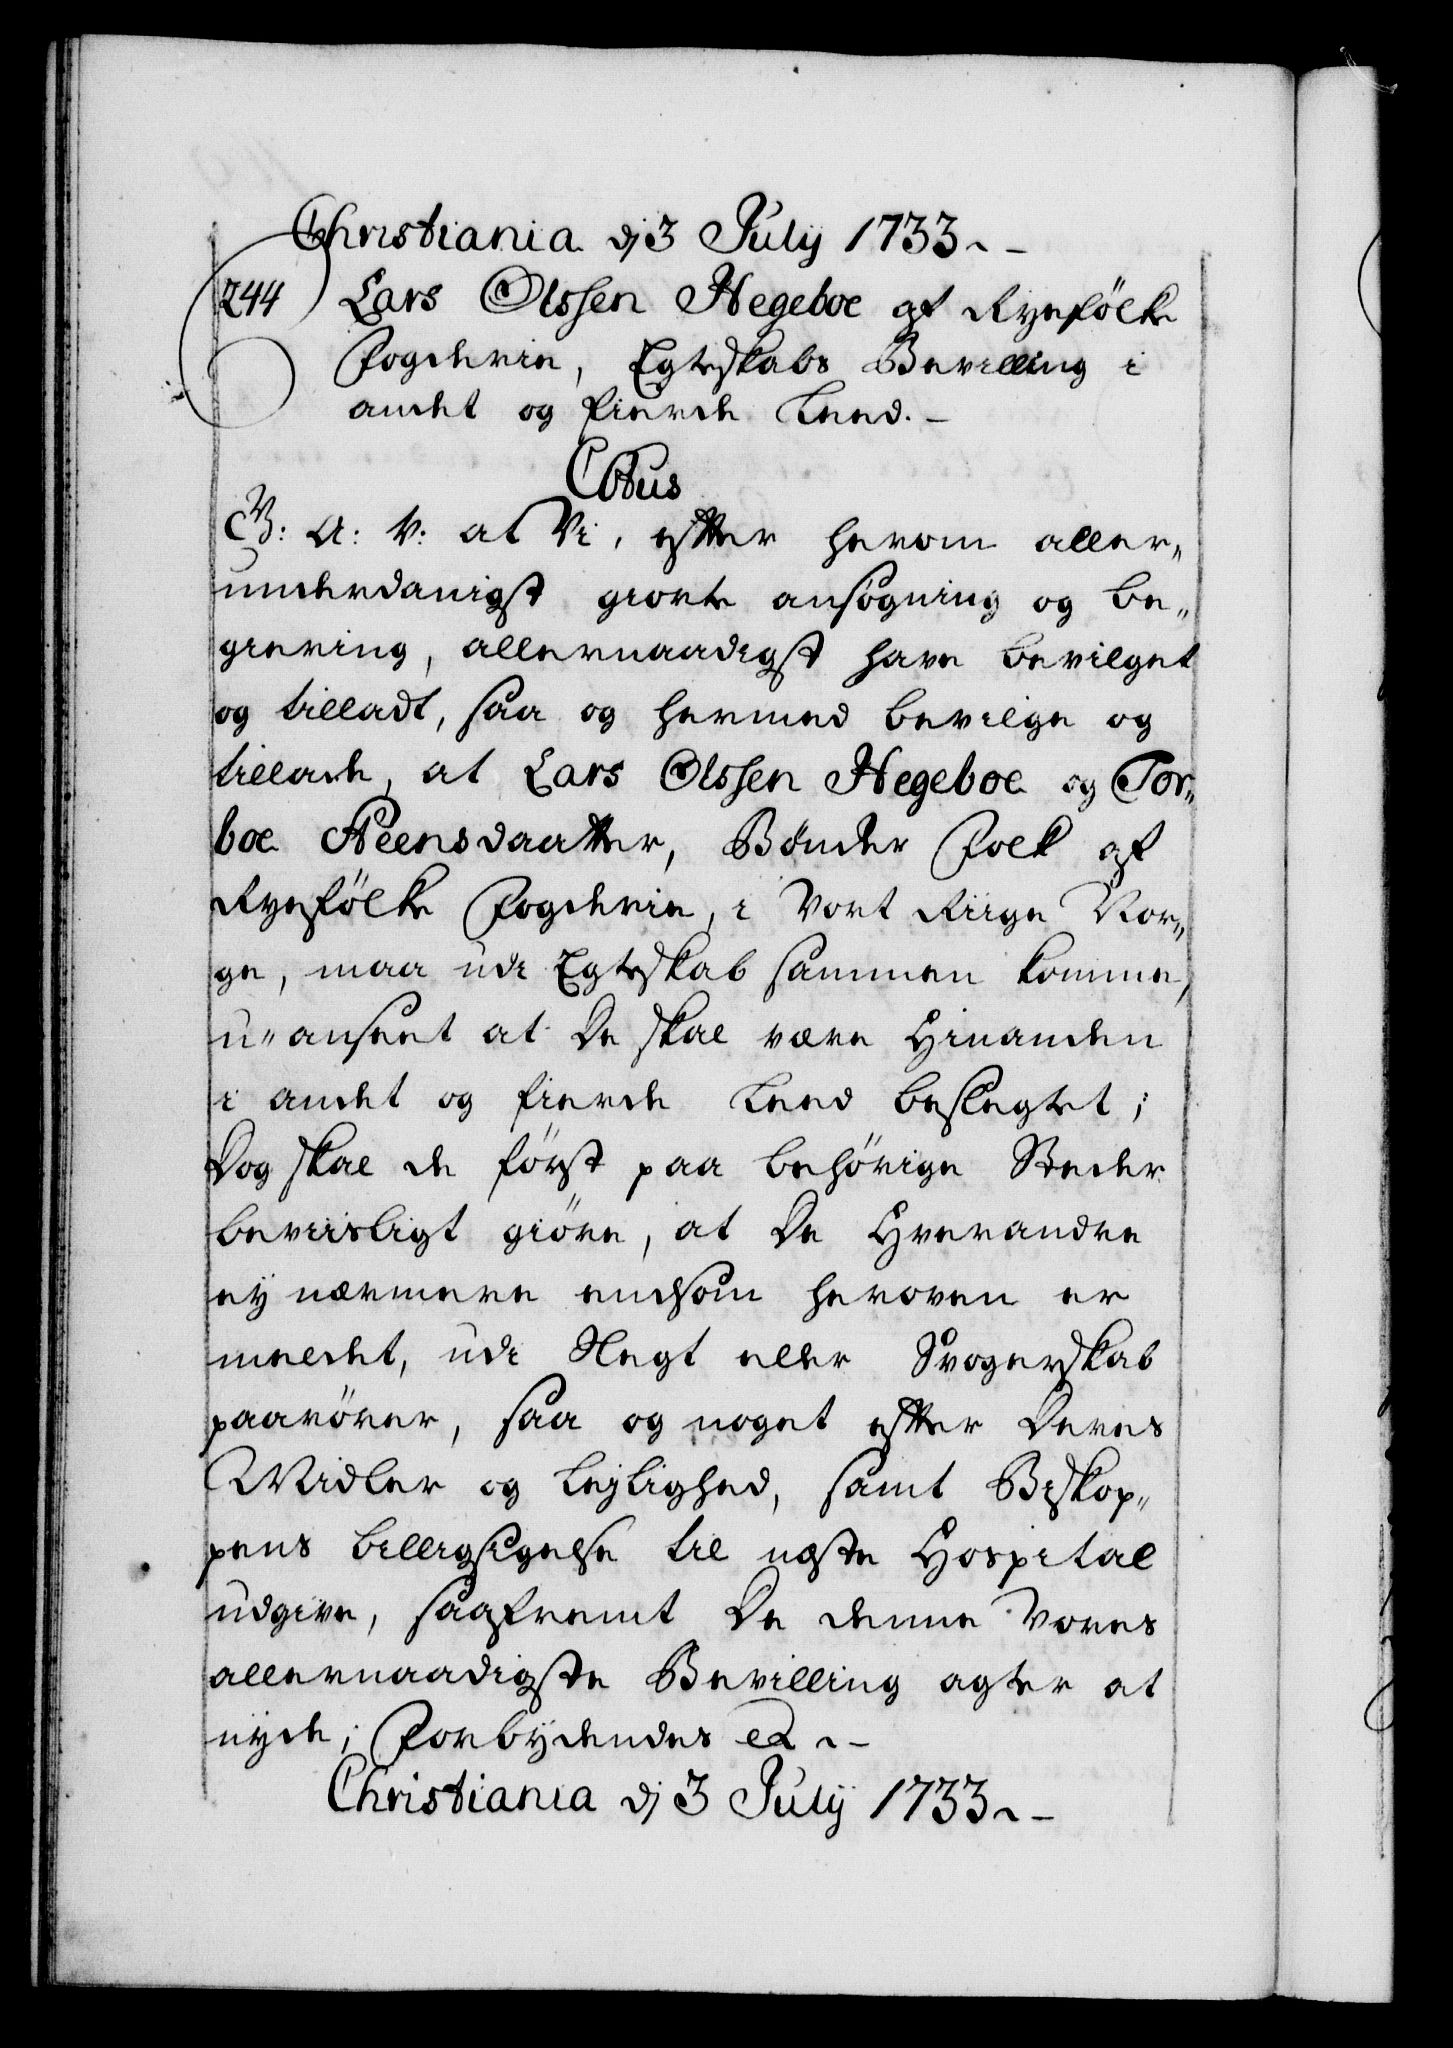 Christiania dj 3 Julij 1733.
244 Lars Olssen Hegeboe af Ryefölke
Fogderie, Egteskabs Bevilling i
andet og fierde Leed.
C6tus
G: A: V: at Vi, efter herom aller„
underdanigst giorte ansøgning og be„
giering, allernaadigst have bevilget
og tilladt, saa og hermed bevilge og
tillade, at Lars Olssen Hegeboe og Tor„
boe Steensdaatter, Bönder Folk af
Ryefölke Fogderie, i Vort Riige Nor„
ge, maa udi Egteskab sammen komme,
u„anseet at De skal være Hinanden
i andet og fierde Leed beslegtet;
Dog skal de först paa behörige Steder
beviisligt giöre, at De Hverandre
ej nærmere endsom heroven er
meldet, udi Slegt eller Svogerskab
paarörer, saa og noget efter Deres
Midler og lejlighed, samt Biskop„
pens billigsigelse til næste Hospital
udgive, saafremt De denne Vores
allernaadigste Bevilling agter at
nyde; Forbydendes etc.
Christiania dj 3 Julij 1733.